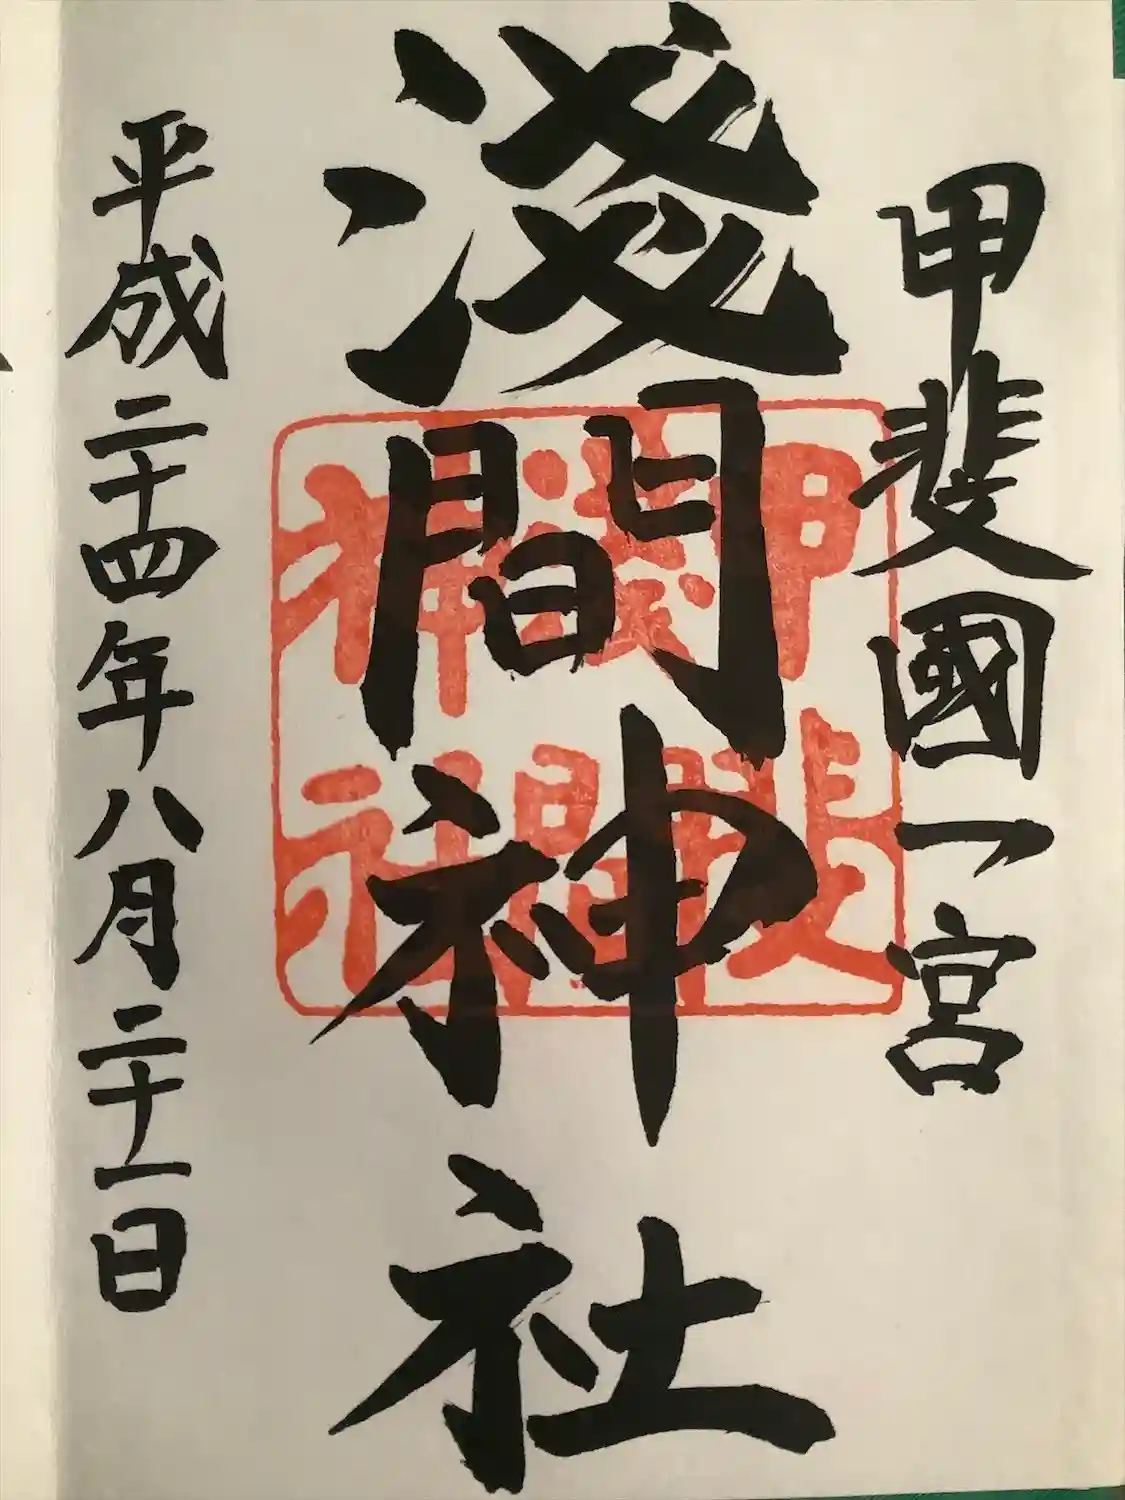 甲斐國一宮
淺間神社
甲斐
國
淺間
神社
平成二十四年八月二十一日